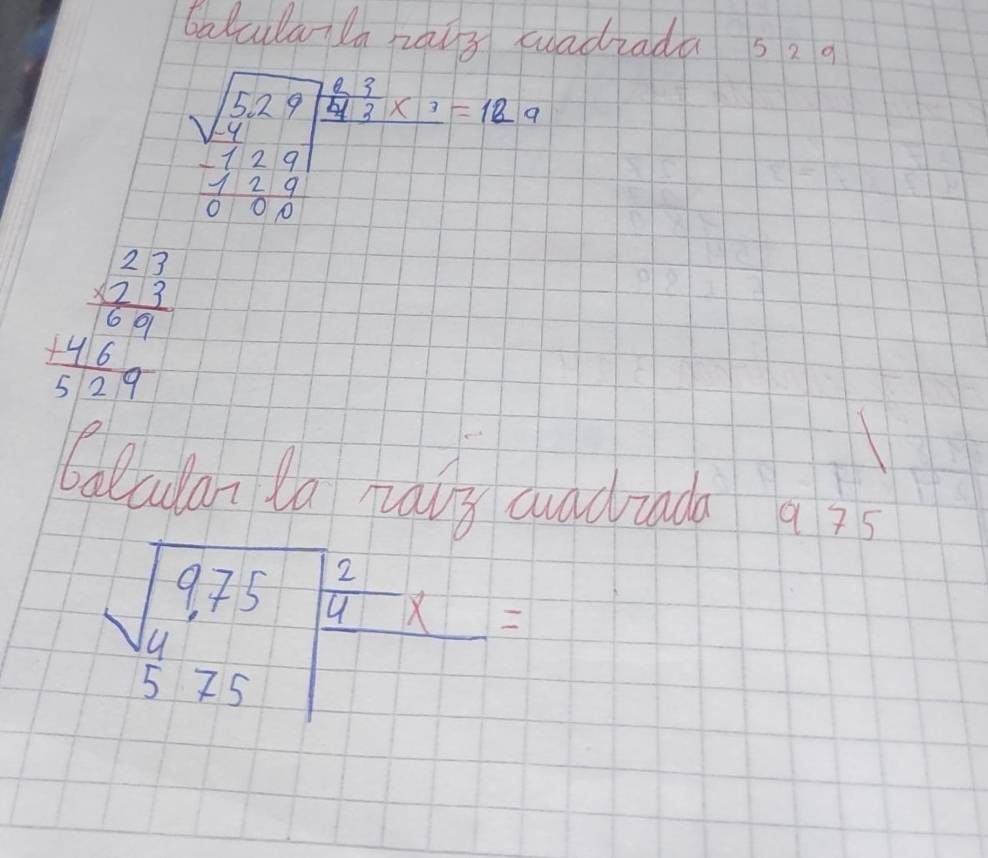 Calcular la raíz cuadrada 529
√5.29 | 23
43 x 3 = 129
-4
-129
129
000
23
x23
69
+46
529
Calcular la raíz cuadrada 975
√9.75 | 2
4 x =
4
575